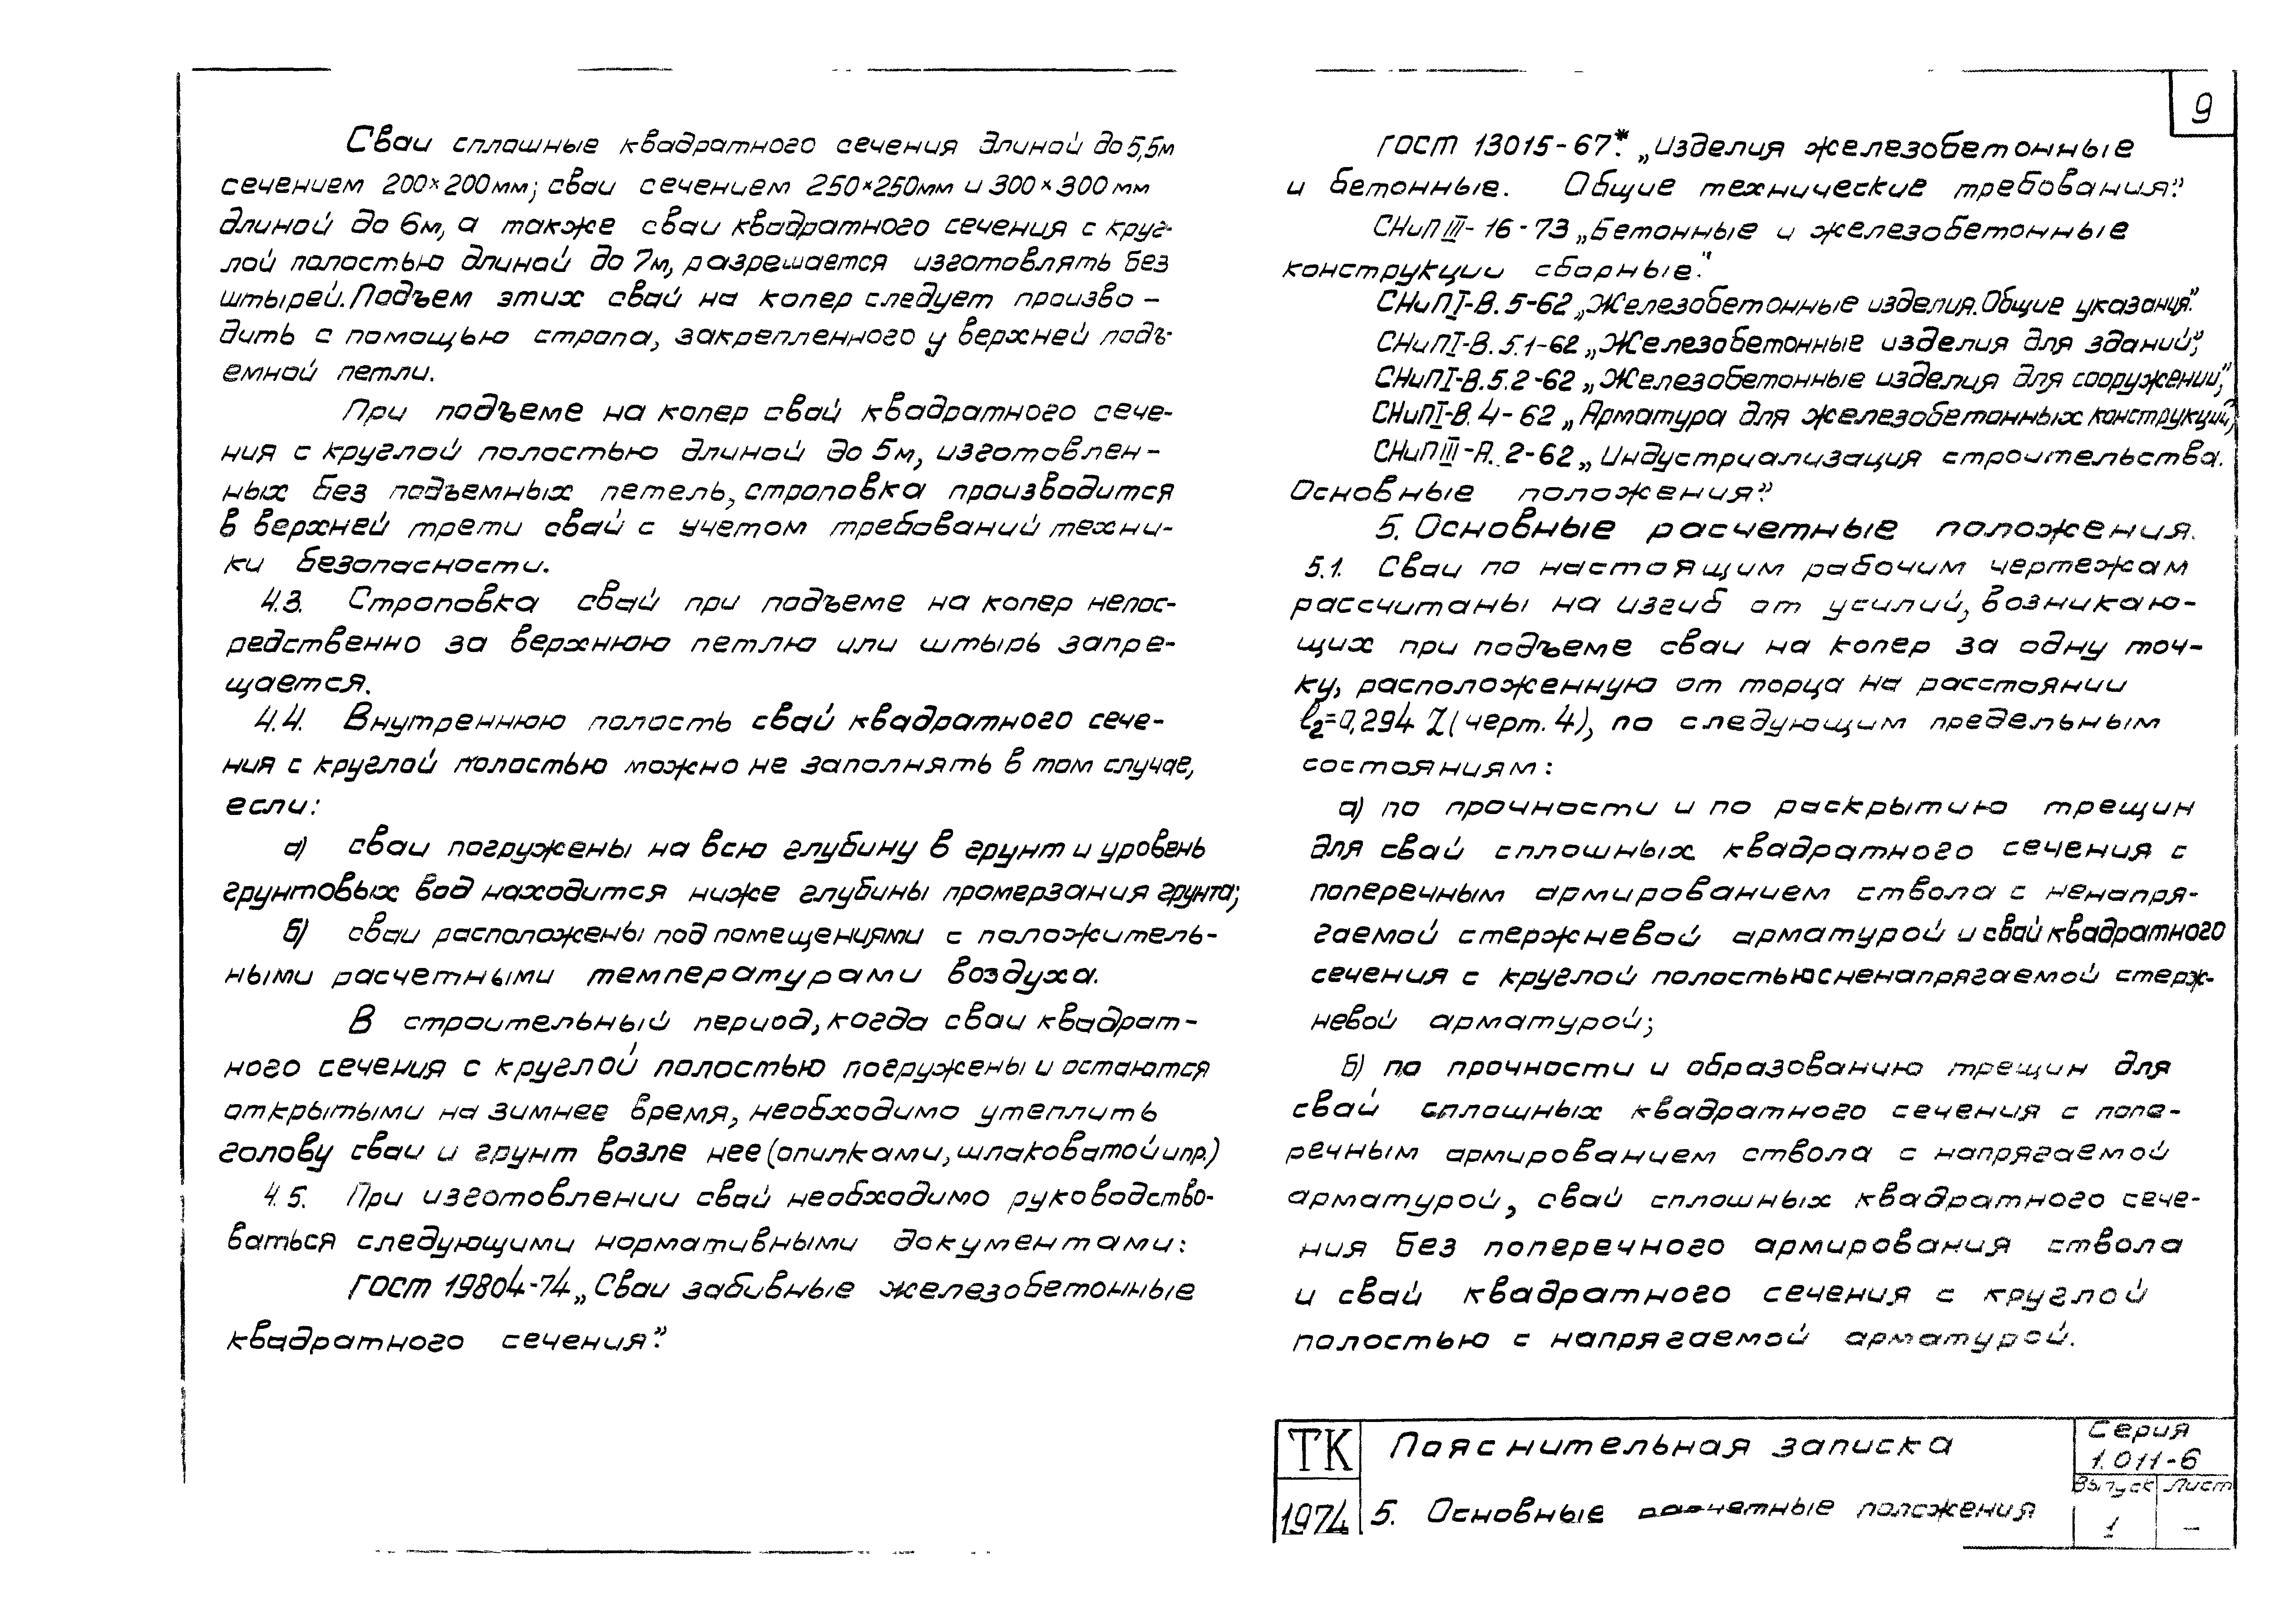 Сваи сплошные квадратного сечения длиной до 5,5м
сечением 200×200мм; сваи сечением 250×250мм и 300×300мм
длиной до 6м, а также сваи квадратного сечения с круг-
лой полостью длиной до 7м, разрешается изготовлять без
штырей. Подъем этих свай на копер следует произво-
дить с помощью стропа, закрепленного у верхней подъ-
емной петли.
При подъеме на копер свай квадратного сече-
ния с круглой полостью длиной до 5м, изготовлен-
ных без подъемных петель, строповка производится
в верхней трети свай с учетом требований техни-
ки безопасности.
4.3. Строповка свай при подъеме на копер непос-
редственно за верхнюю петлю или штырь запре-
щается.
4.4. Внутреннюю полость свай квадратного сече-
ния с круглой полостью можно не заполнять в том случае,
если:
а) сваи погружены на всю глубину в грунт и уровень
грунтовых вод находится ниже глубины промерзания грунта;
б) сваи расположены под помещениями с положитель-
ными расчетными температурами воздуха.
В строительный период, когда сваи квадрат-
ного сечения с круглой полостью погружены и остаются
открытыми на зимнее время, необходимо утеплить
голову сваи и грунт возле нее (опилками, шлаковатой и пр.)
4.5. При изготовлении свай необходимо руководство-
ваться следующими нормативными документами:
ГОСТ 19804-74 „Сваи забивные железобетонные
квадратного сечения".
9
ГОСТ 13015-67*. „Изделия железобетонные
и бетонные. Общие технические требования".
СНиП III-16-73 „Бетонные и железобетонные
конструкции сборные".
СНиП I-В.5-62 „Железобетонные изделия. Общие указания".
СНиП I-В.5.1-62 „Железобетонные изделия для зданий",
СНиП I-В.5.2-62 „Железобетонные изделия для сооружений",
СНиП I-В.4-62 „Арматура для железобетонных конструкций",
СНиП III-А.2-62 „Индустриализация строительства.
Основные положения".
5. Основные расчетные положения.
5.1. Сваи по настоящим рабочим чертежам
рассчитаны на изгиб от усилий, возникаю-
щих при подъеме сваи на копер за одну точ-
ку, расположенную от торца на расстоянии
l₂=0,294 L (черт. 4), по следующим предельным
состояниям:
а) по прочности и по раскрытию трещин
для свай сплошных квадратного сечения с
поперечным армированием ствола с ненапря-
гаемой стержневой арматурой и свай квадратного
сечения с круглой полостью с ненапрягаемой стерж-
невой арматурой;
б) по прочности и образованию трещин для
свай сплошных квадратного сечения с попе-
речным армированием ствола с напрягаемой
арматурой, свай сплошных квадратного сече-
ния без поперечного армирования ствола
и свай квадратного сечения с круглой
полостью с напрягаемой арматурой.
ТК
1974
Пояснительная записка
5. Основные расчетные положения
Серия
1.011-6
Выпуск Лист
1 –